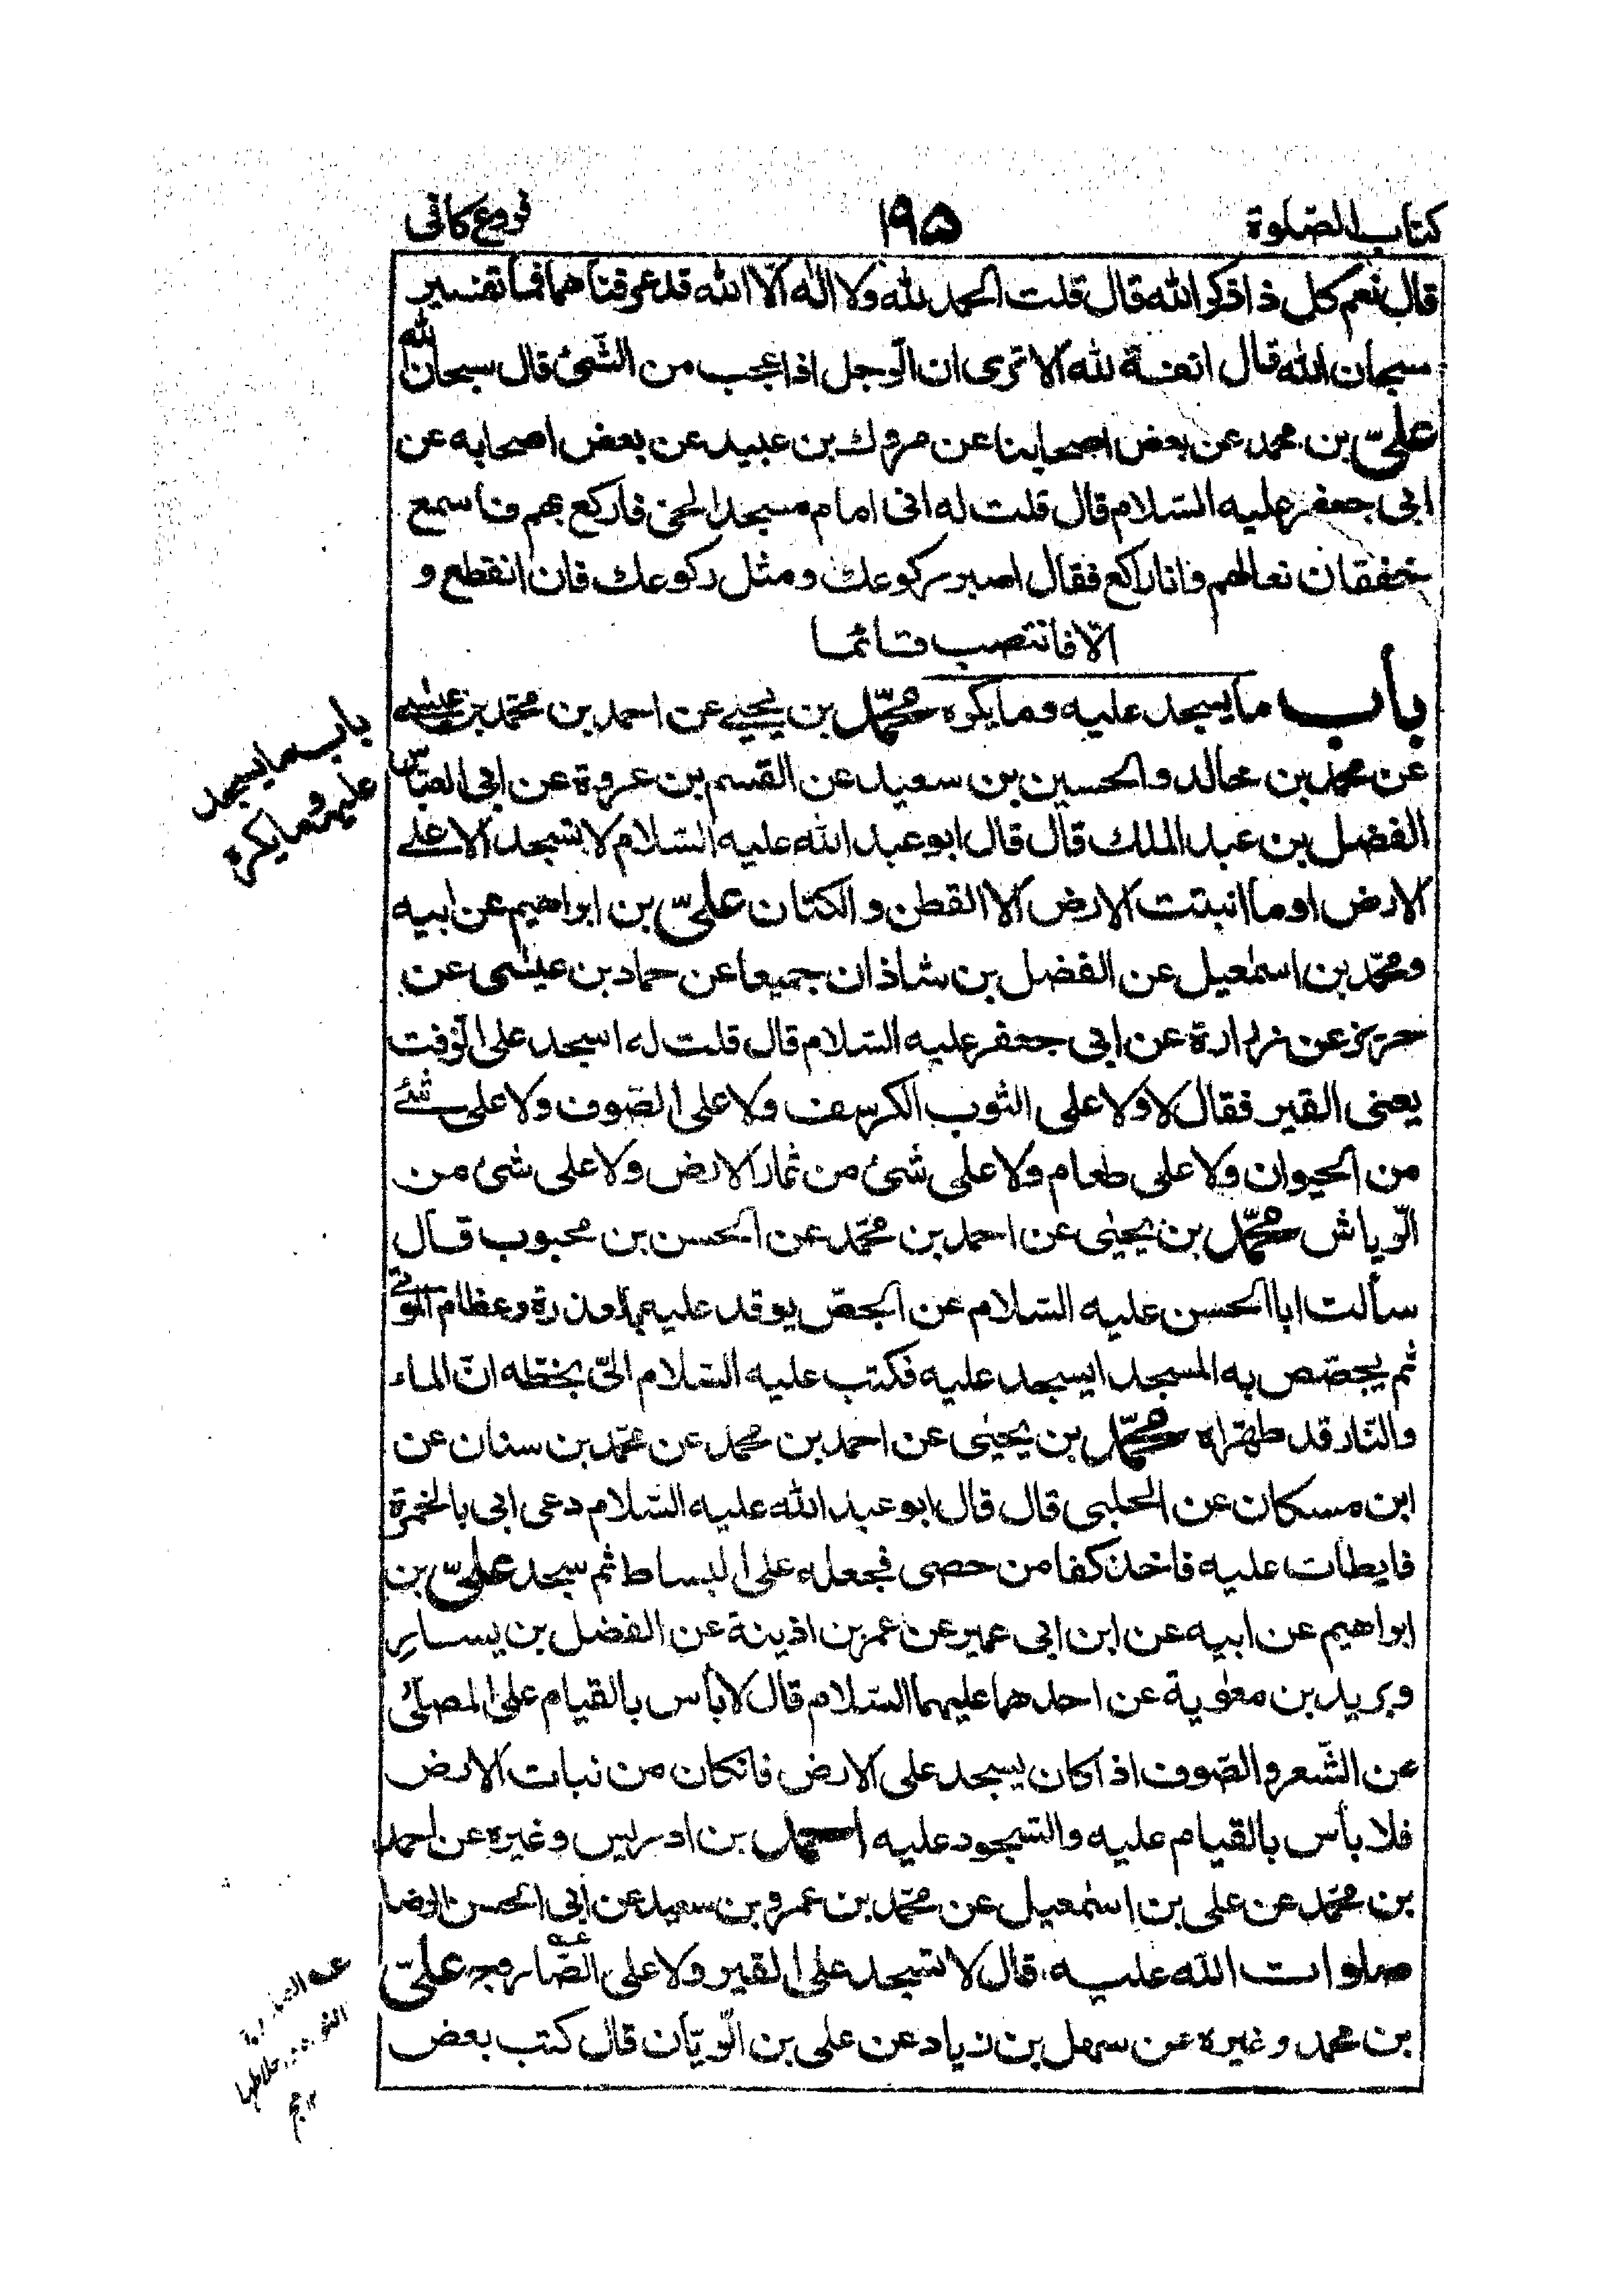 كتاب الصّلوة
١٩٥
فروع كافى
قال نعم كل ذا ذكر الله قال قلت الحمد لله ولا اله الّا الله قد عرفناهما فما تفسير
سبحان الله قال انفة لله الا ترى ان الرجل اذا عجب من الشّئ قال سبحان الله
علىّ بن محمد عن بعض اصحابنا عن مروك بن عبيد عن بعض اصحابه عن
ابى جعفر عليه السّلام قال قلت له انى امام مسجد الحى فاركع بهم فاسمع
خفقان نعالهم وانا راكع فقال اصبر ركوعك ومثل ركوعك فان انقطع و
الّا فانتصب قائما
باب ما يسجد عليه وما يكره محمّد بن يحيى عن احمد بن محمّد بن عيسى
عن محمد بن خالد والحسين بن سعيد عن القسم بن عروة عن ابى العبّاس
الفضل بن عبد الملك قال قال ابو عبد الله عليه السّلام لا تسجد الا على
الارض او ما انبتت الارض الا القطن والكتان علىّ بن ابراهيم عن ابيه
ومحمّد بن اسمعيل عن الفضل بن شاذان جميعا عن حماد بن عيسى عن
حريز عن زرارة عن ابى جعفر عليه السّلام قال قلت له اسجد على الزّفت
يعنى القير فقال لا ولا على الثوب الكرسف ولا على الصّوف ولا على شئ
من الحيوان ولا على طعام ولا على شئ من ثمار الارض ولا على شئ من
الرّياش محمّد بن يحيى عن احمد بن محمّد عن الحسن بن محبوب قال
سألت ابا الحسن عليه السّلام عن الجصّ يوقد عليه بالعذرة وعظام الموتى
ثم يجصّص به المسجد ايسجد عليه فكتب عليه السّلام الىّ بخطّه انّ الماء
والنّار قد طهّراه محمّد بن يحيى عن احمد بن محمد عن محمّد بن سنان عن
ابن مسكان عن الحلبى قال قال ابو عبد الله عليه السّلام دعى ابى بالخمرة
فابطأت عليه فاخذ كفا من حصى فجعله على البساط ثم سجد علىّ بن
ابراهيم عن ابيه عن ابن ابى عمير عن عمر بن اذينة عن الفضل بن يسار
وبريد بن معوية عن احدهما عليهما السّلام قال لا بأس بالقيام على المصلّى
من الشّعر والصّوف اذا كان يسجد على الارض فانكان من نبات الارض
فلا بأس بالقيام عليه والسّجود عليه احمد بن ادريس وغيره عن احمد
بن محمّد عن على بن اسمعيل عن محمّد بن عمرو بن سعيد عن ابى الحسن الرضا
صلوات الله عليه قال لا تسجد على القير ولا على الصّاروج علىّ
بن محمد وغيره عن سهل بن زياد عن على بن الرّيّان قال كتب بعض
باب ما يسجد
عليه وما يكره